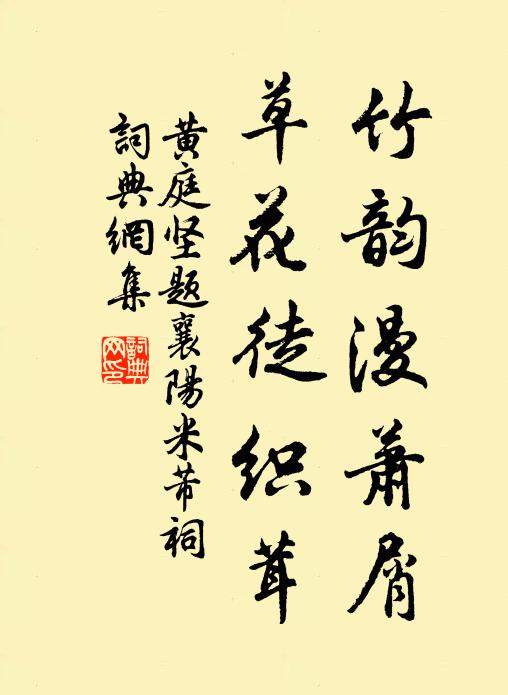 竹韵漫萧屑
草花徒织茸
黄庭坚题襄陽米芾祠
詞典網集
詞典网印